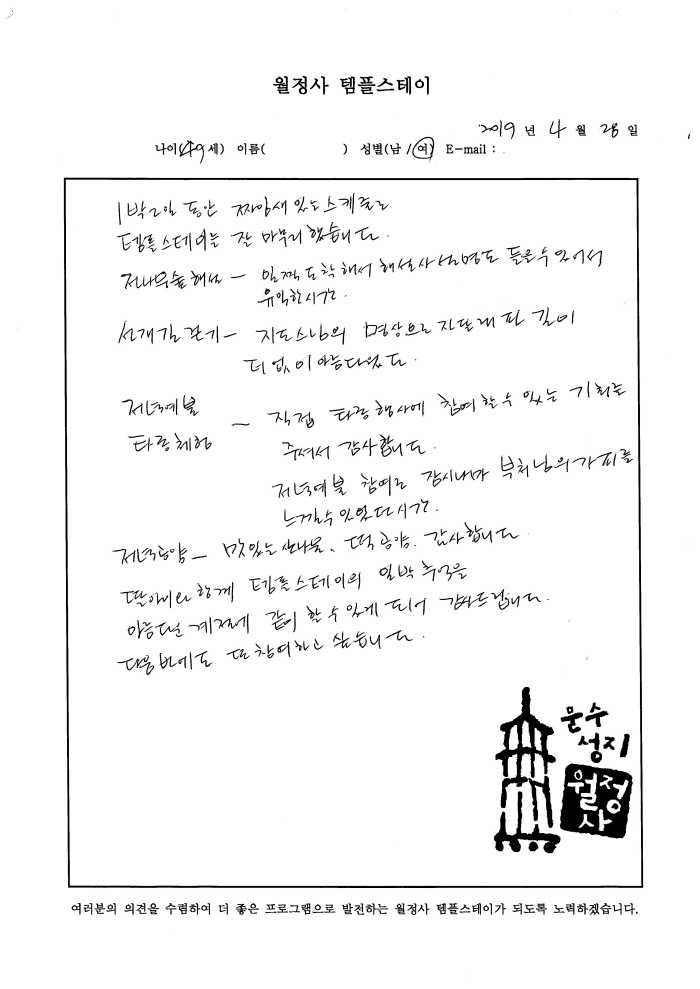 월정사 템플스테이
2019 년 4 월 28 일
나이(49세) 이름( ) 성별(남 / 여) E-mail :
1박2일 동안 짜임새 있는 스케쥴로
템플스테이는 잘 마무리했습니다.
전나무숲해설 - 일찍 도착해서 해설사 설명도 들을수 있어서
유익한 시간.
선재길 걷기 - 지도스님의 명상으로 진달래 핀 길이
더없이 아름다웠다.
저녁예불 - 직접 타종행사에 참여할수 있는 기회를
타종체험 주셔서 감사합니다.
저녁예불 참여로 잠시나마 부처님의 가피를
느낄수 있었던 시간.
저녁공양 - 맛있는 산나물, 떡 공양. 감사합니다.
딸아이와 함께 템플스테이의 일박 추억을
아름다운 계절에 같이 할 수 있게 되어 감사드립니다.
다음번에도 또 참여하고 싶습니다.
문수
성지
월정
사
여러분의 의견을 수렴하여 더 좋은 프로그램으로 발전하는 월정사 템플스테이가 되도록 노력하겠습니다.